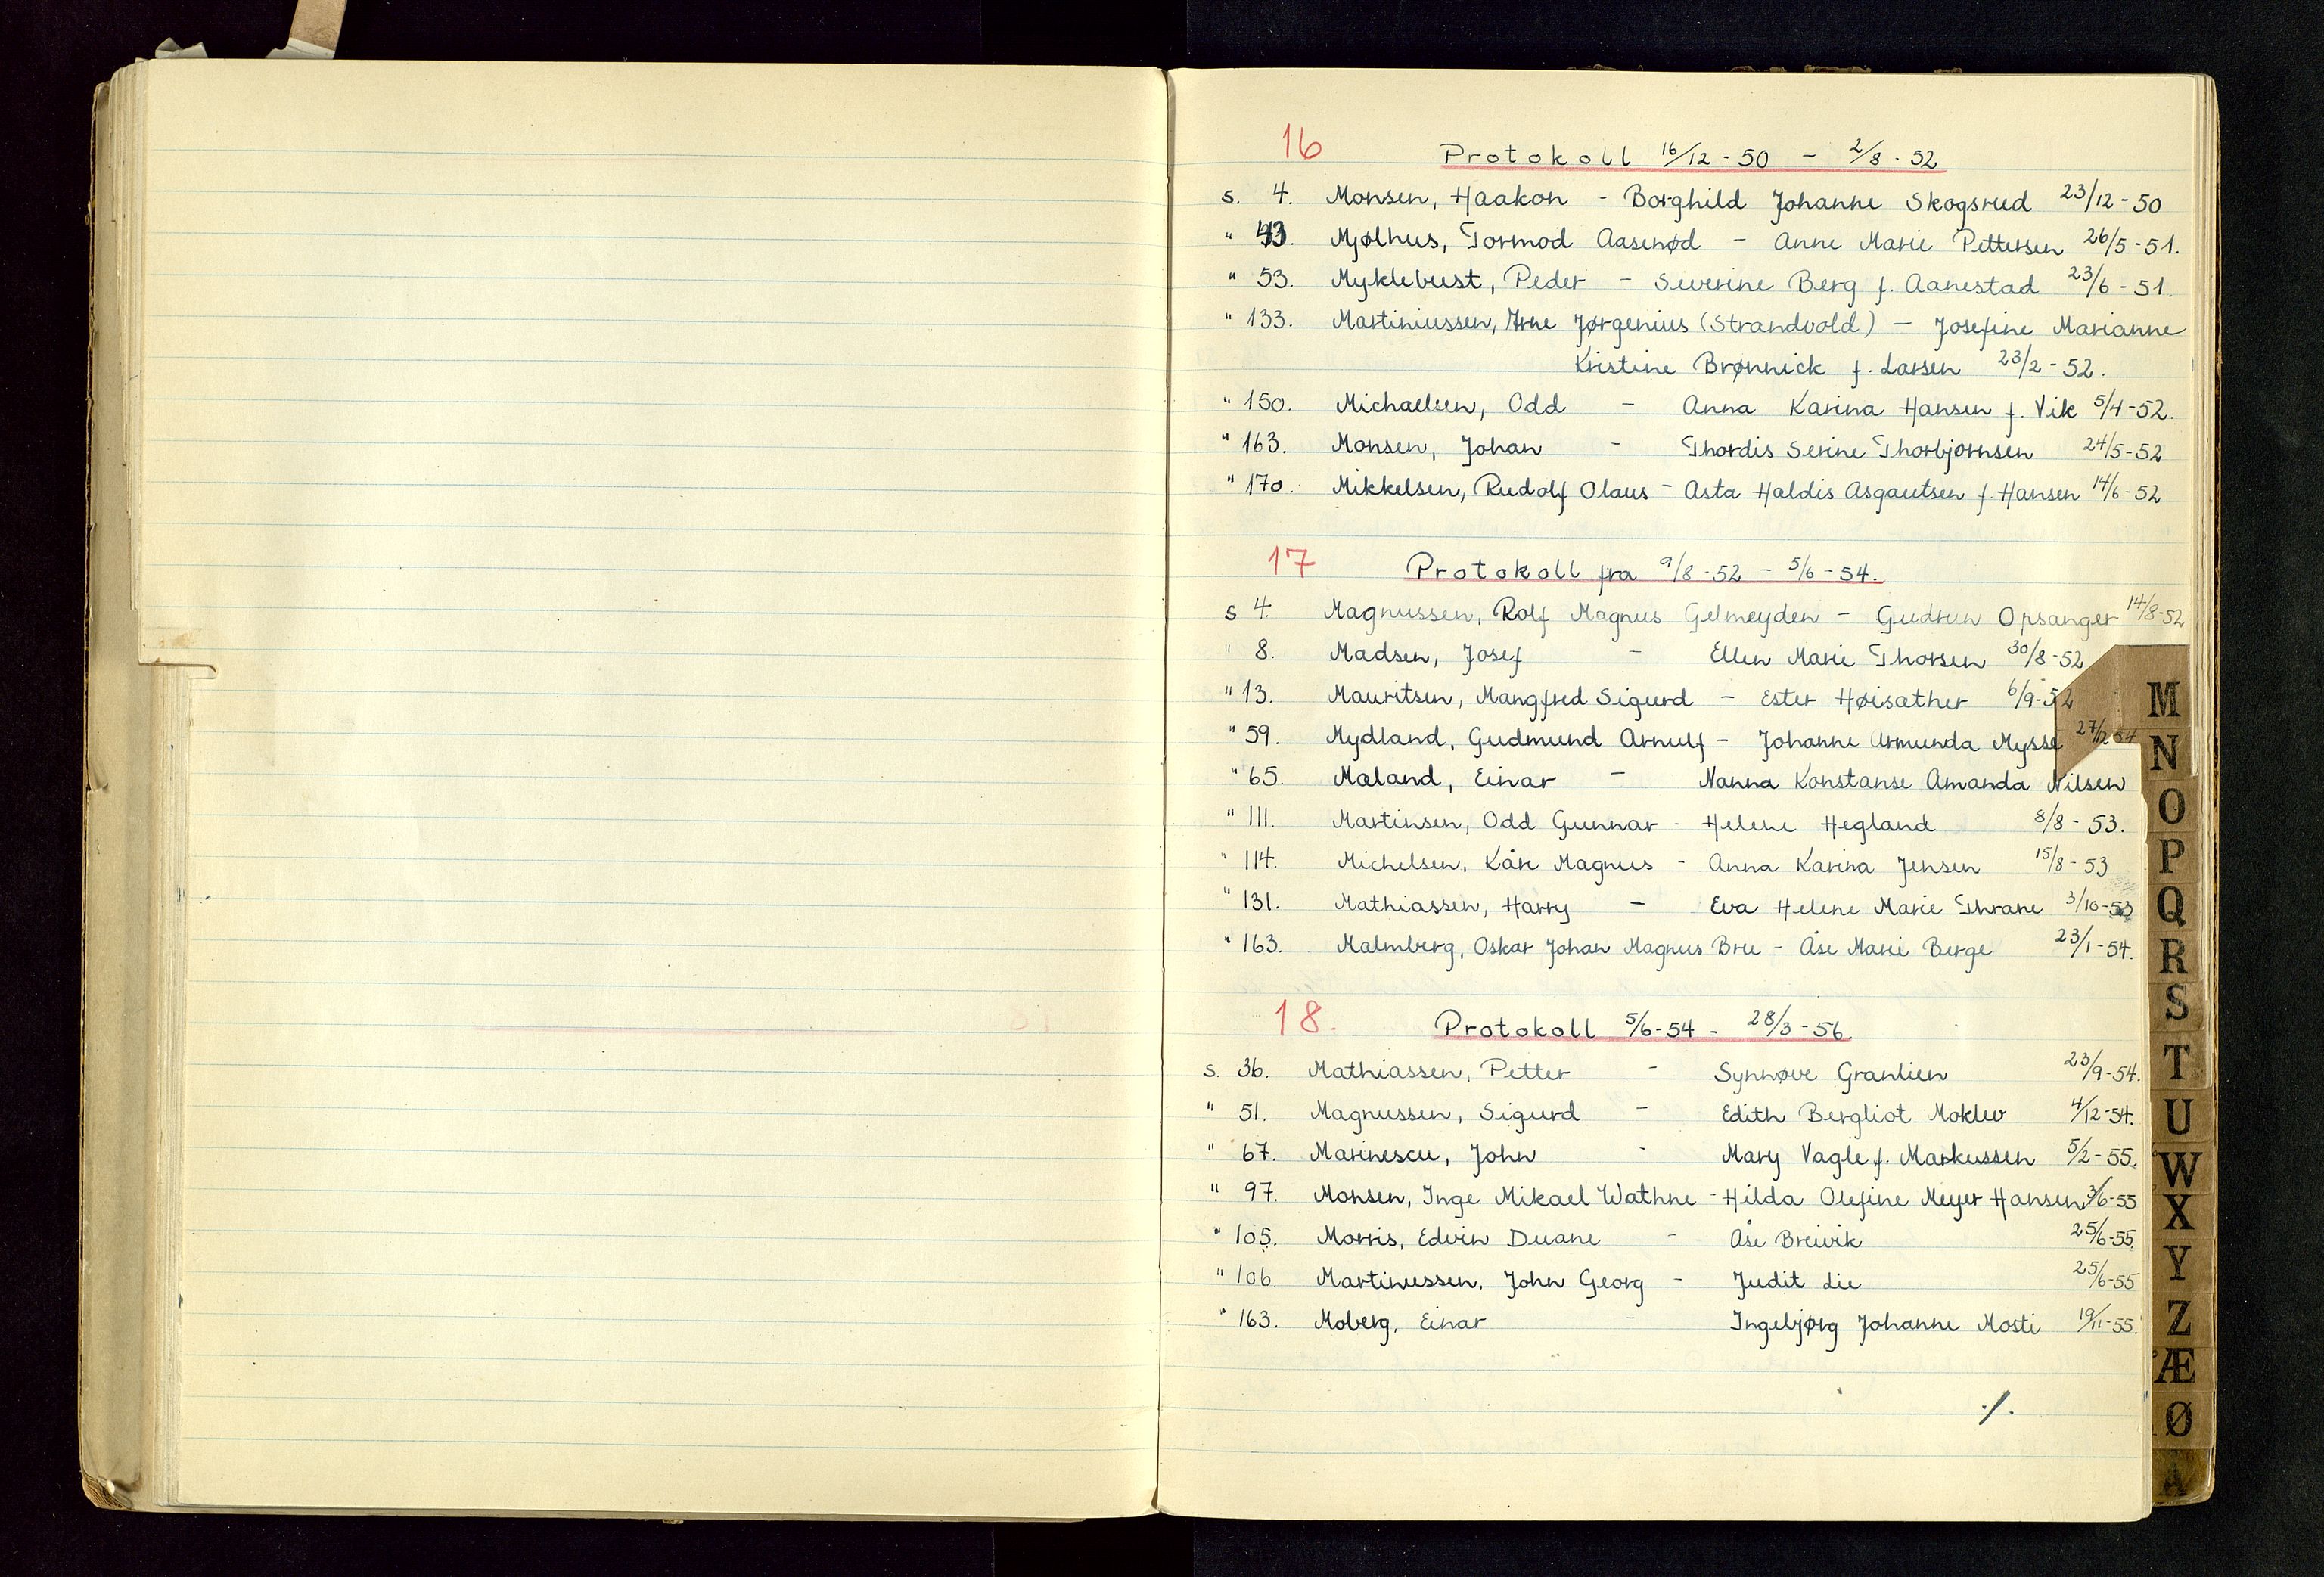 16 Protokoll 16/12-50 - 2/8-52
s. 4. Monsen, Haakon - Borghild Johanne Skogsrud 23/12-50
" 43. Mjølhus, Tormod Aasenød - Anne Marie Pettersen 26/5-51.
" 53. Myklebust, Peder - Severine Berg f. Aanestad 23/6-51.
" 133. Martiniussen, Arne Jørgenius (Strandvold) - Josefine Marianne
Kristine Brønnick f. Larsen 23/2-52.
" 150. Michaelsen, Odd - Anna Karina Hansen f. Vik 5/4-52.
" 163. Monsen, Johan - Thordis Serine Thorbjørnsen 24/5-52
" 170. Mikkelsen, Rudolf Olaus - Asta Haldis Asgautsen f. Hansen 14/6-52
17 Protokoll fra 9/8-52 - 5/6-54.
s 4. Magnussen, Rolf Magnus Gelmeyden - Gudrun Opsanger 14/8-52
" 8. Madsen, Josef - Ellen Marie Thorsen 30/8-52
" 13. Mauritsen, Mangfred Sigurd - Ester Høisæther 6/9-52
" 59. Mydland, Gudmund Arnulf - Johanne Armunda Mysse 27/12
" 65. Maland, Einar - Nanna Konstanse Amanda Nilsen
" 111. Martinsen, Odd Gunnar - Helene Hegland 8/8-53.
" 114. Michelsen, Kåre Magnus - Anna Karina Jensen 15/8-53
" 131. Mathiassen, Harry - Eva Helene Marie Thrane 3/10-53
" 163. Malmberg, Oskar Johan Magnus Bru - Åse Marie Berge 23/1-54.
18. Protokoll 5/6-54 - 28/3-56
s. 36. Mathiassen, Petter - Synnøve Granlien 23/9-54.
" 51. Magnussen, Sigurd - Edith Bergliot Moklev 4/12-54.
" 67. Marinescu, John - Mary Vagle f. Markussen 5/2-55.
" 97. Monsen, Inge Mikael Wathne - Hilda Olefine Meyer Hansen 3/6-55
" 105. Morris, Edvin Duane - Åse Breivik 25/6-55.
" 106. Martinussen, John Georg - Judit Lie 25/6-55
" 163. Moberg, Einar - Ingebjørg Johanne Mosti 19/11-55.
./.
M
N
O
P
Q
R
S
T
U
W
X
Y
Z
Æ
Ø
Å